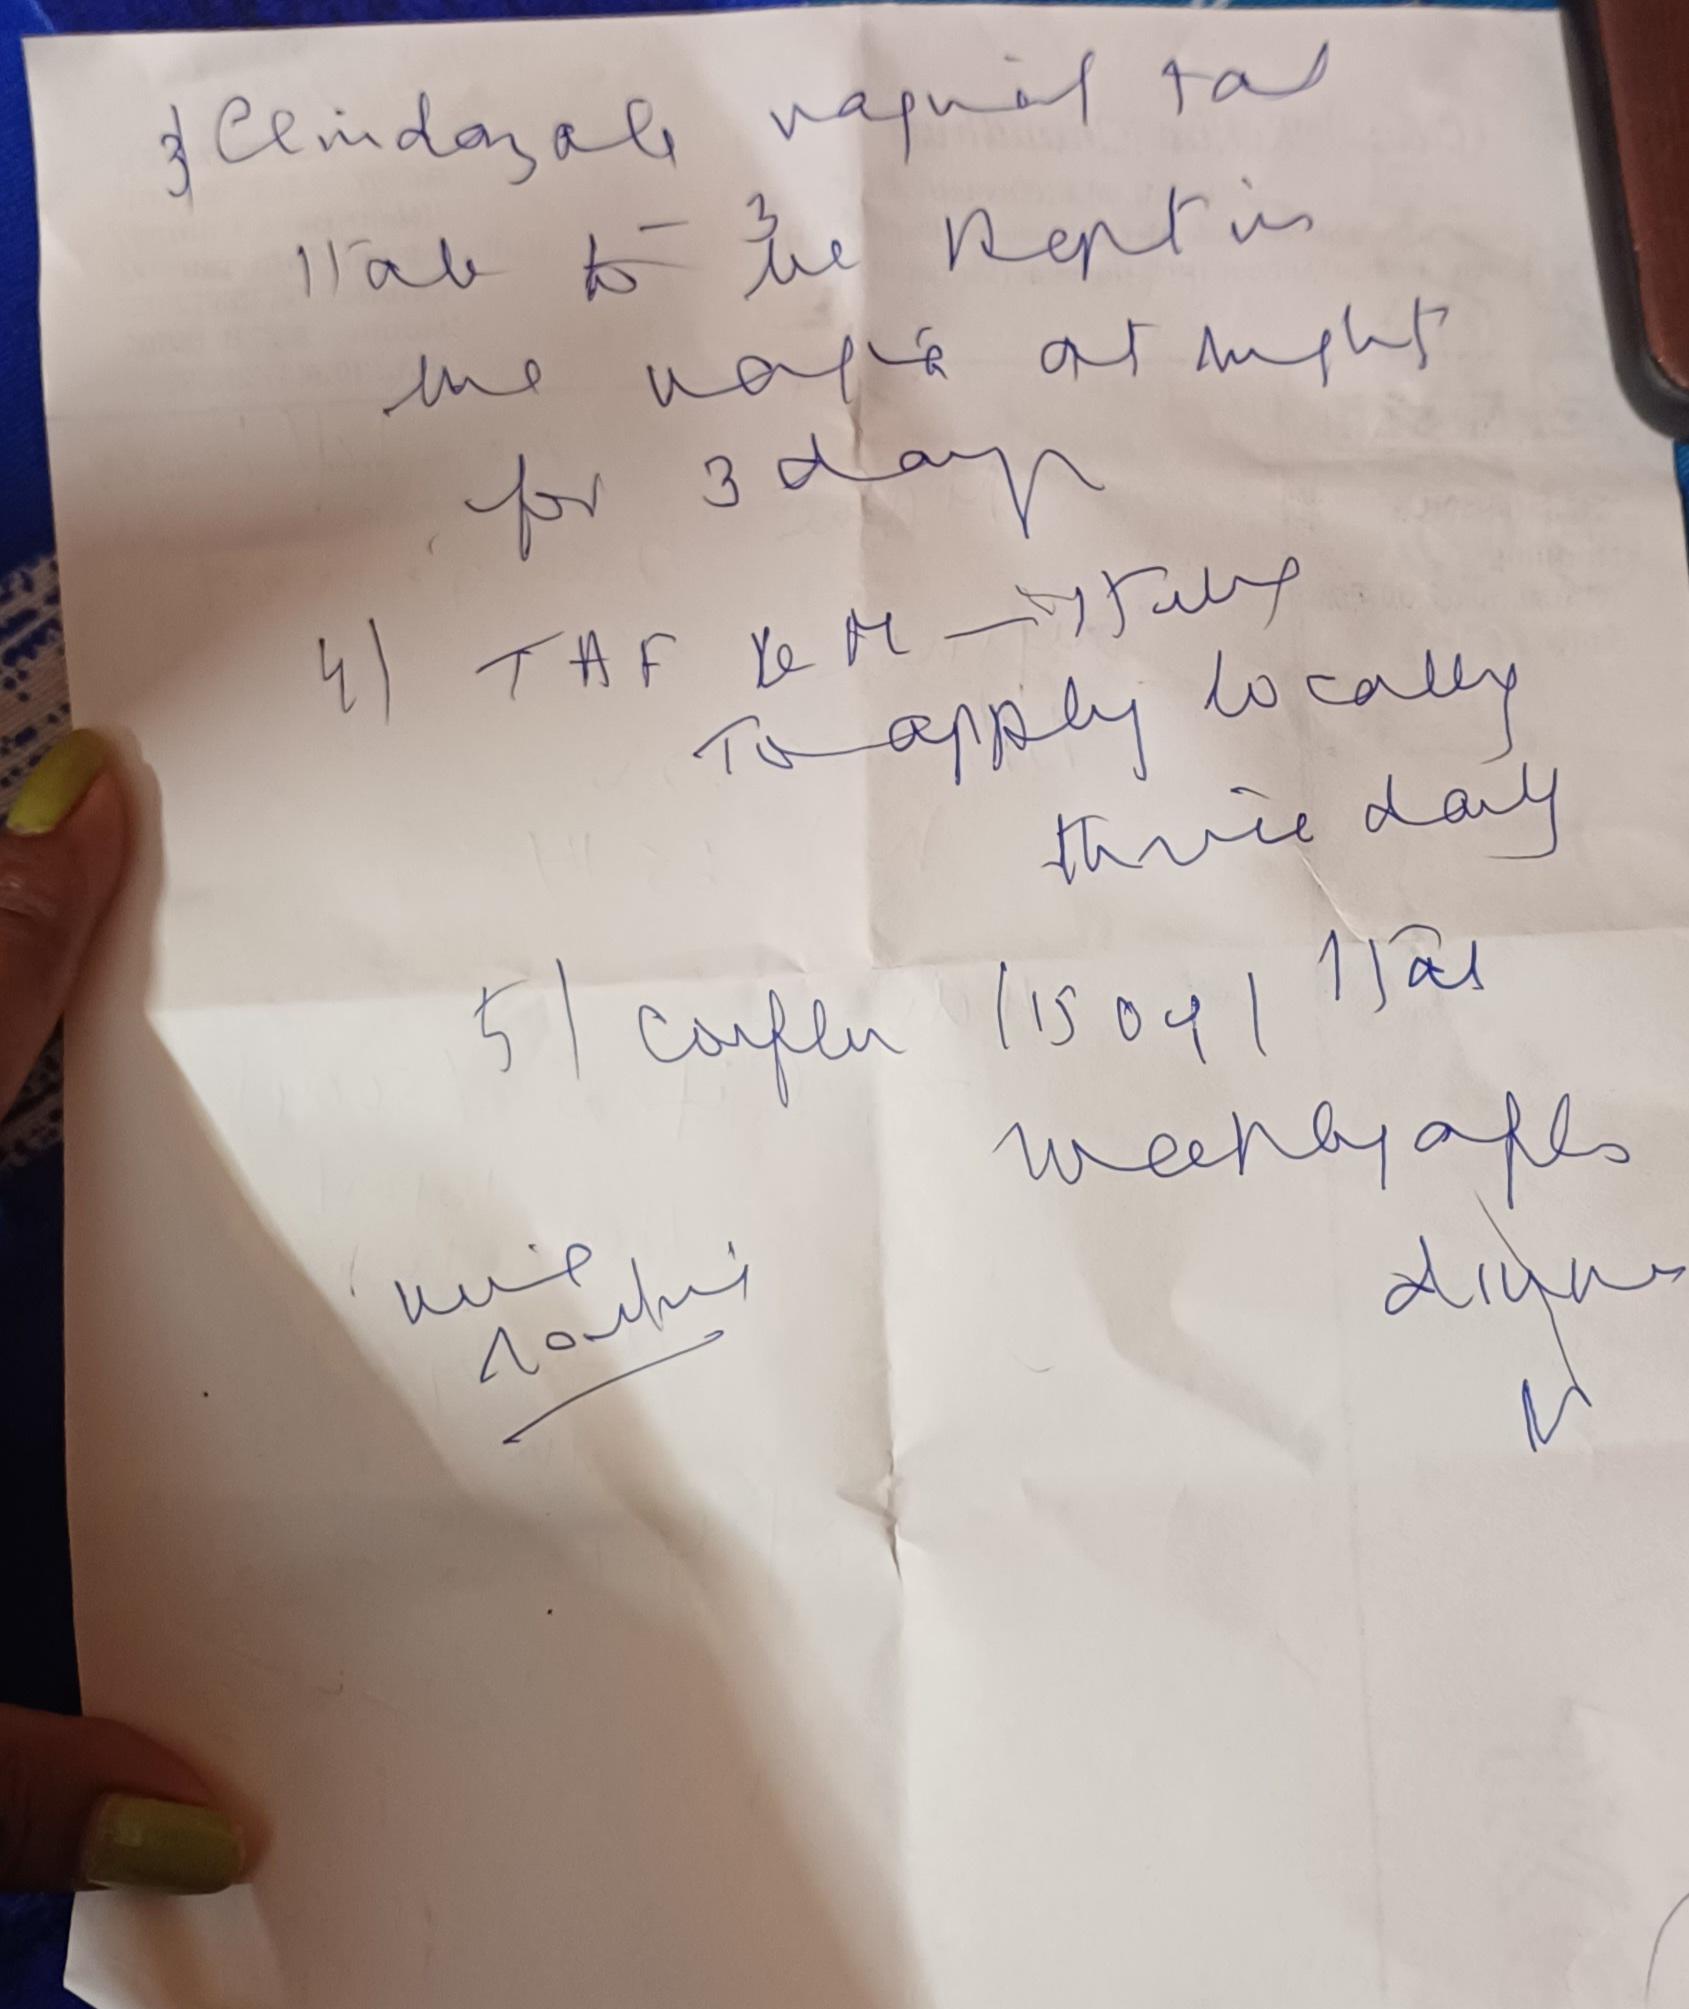 3) Clindazole vaginal tab
1 Tab to be kept in – 3
the vagina at night
for 3 days
4) TAF XM → 1 tube
To apply locally
thrice daily
5) (150) 1 tab
weekly after
dinner